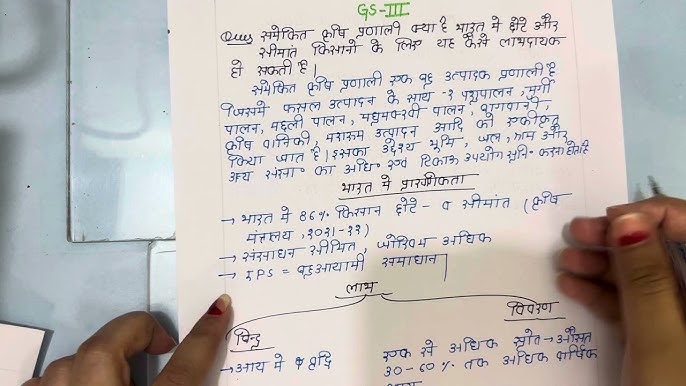 GS-III
Ques समेकित कृषि प्रणाली क्या है भारत में छोटे और
सीमांत किसानो के लिए यह कैसे लाभदायक
हो सकती है।
समेकित कृषि प्रणाली एक बहु उत्पादक प्रणाली है
जिसमे फसल उत्पादन के साथ-२ पशुपालन, मुर्गी
पालन, मछली पालन, मधुमक्खी पालन, बागवानी,
कृषि वानिकी, मशरूम उत्पादन आदि को एकीकृत
किया जाता है। इसका उद्देश्य भूमि, जल, श्रम और
अन्य संसा० का अधि० एवं टिकाऊ उपयोग सुनि० करना होता है
भारत मे प्रासंगिकता
→ भारत में 86% किसान छोटे - व सीमांत (कृषि
मंत्रालय, २०२१-२२)
→ संसाधन सीमित, जोखिम अधिक
→ IFS = बहुआयामी समाधान
लाभ
बिन्दु
विवरण
→ आय मे वृद्धि
एक से अधिक स्रोत → औसत
30-60% तक अधिक वार्षिक